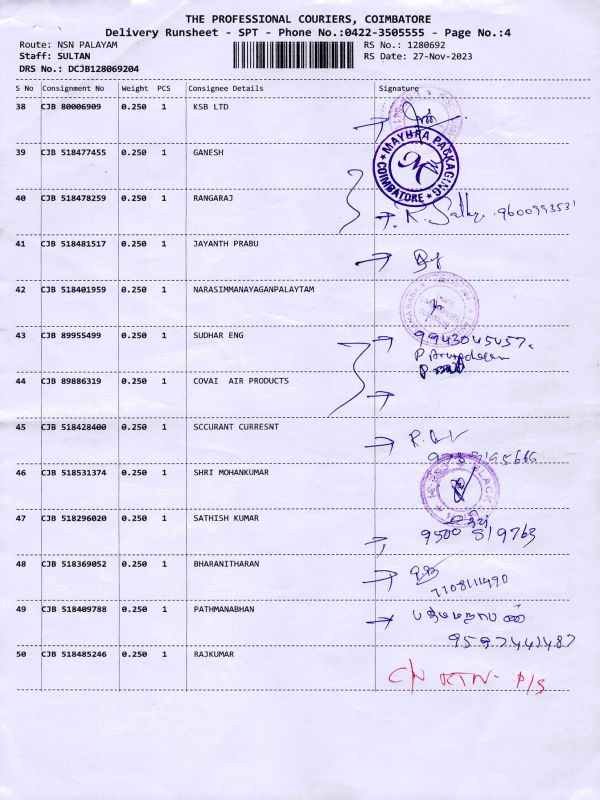 THE PROFESSIONAL COURIERS, COIMBATORE
Delivery Runsheet - SPT - Phone No.:0422-3505555 - Page No.:4
Route: NSN PALAYAM
RS No.: 1280692
Staff: SULTAN
RS Date: 27-Nov-2023
DRS No.: DCJB128069204
S No Consignment No Weight PCS Consignee Details Signature
38 CJB 80006909 0.250 1 KSB LTD
39 CJB 518477455 0.250 1 GANESH
MAYURA PACKAGING
COIMBATORE
40 CJB 518478259 0.250 1 RANGARAJ
9600993531
41 CJB 518481517 0.250 1 JAYANTH PRABU
42 CJB 518401959 0.250 1 NARASIMMANAYAGANPALAYTAM
43 CJB 89955499 0.250 1 SUDHAR ENG
9943045457.
44 CJB 89886319 0.250 1 COVAI AIR PRODUCTS
45 CJB 518428400 0.250 1 SCCURANT CURRESNT
46 CJB 518531374 0.250 1 SHRI MOHANKUMAR
47 CJB 518296020 0.250 1 SATHISH KUMAR
9500 819763
48 CJB 518369052 0.250 1 BHARANITHARAN
7708111490
49 CJB 518409788 0.250 1 PATHMANABHAN
9597441487
50 CJB 518485246 0.250 1 RAJKUMAR
C/N RTN- P/S